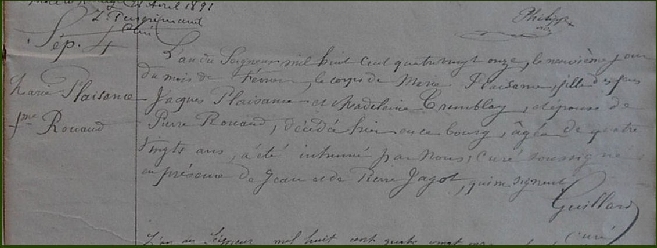 Avril 1891
Philipp
Curé
Sép. 4
L'an du Seigneur mil huit cent quatre vingt onze, le neuvième jour
du mois de Février, le corps de Marie Plaisance, fille de feus
Marie Plaisance
Jaques Plaisance et Madeleine Tremblay, épouse de
fme Rouaud
Pierre Rouaud, décédée hier en ce bourg, âgée de quatre
vingts ans, a été inhumé par Nous, Curé soussigné
en présence de Jean et de Pierre Jagot, qui ne signent
Guillard
Curé
L'an du Seigneur mil huit cent quatre vingt